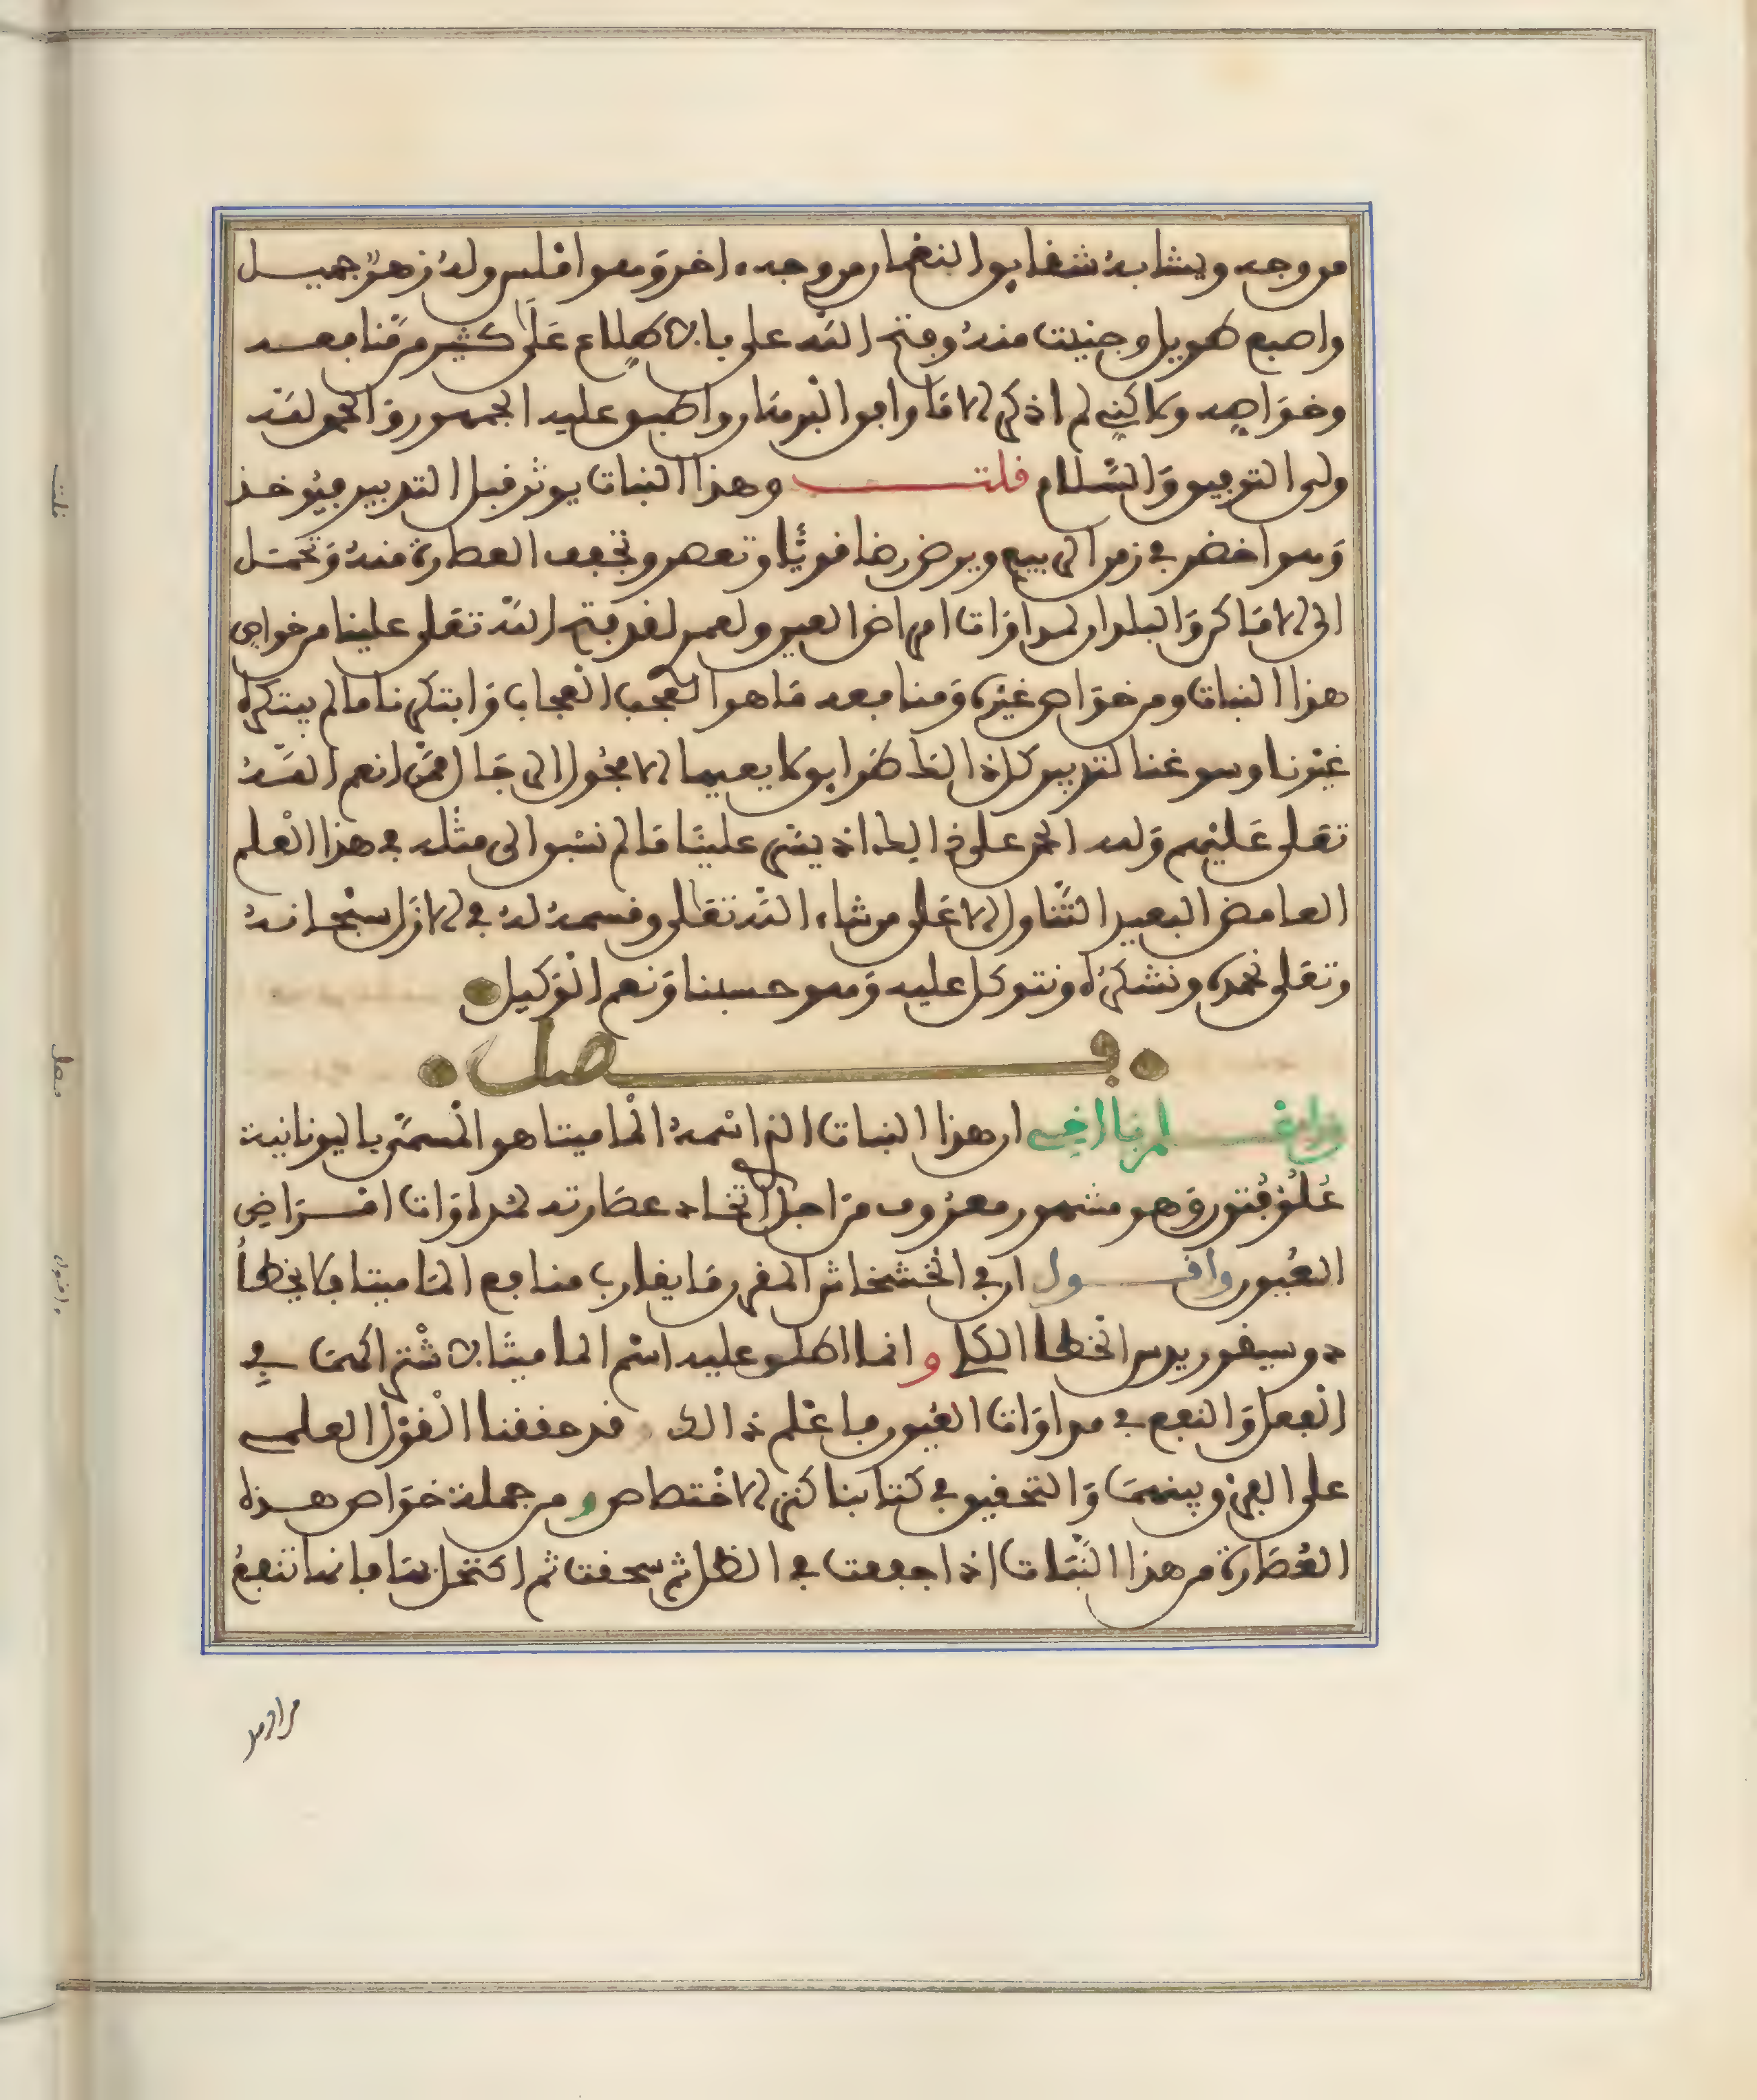 من وجه ويشابه شقايق النعمان من وجه اخر وهو املس وله زهر جميل
واصبع طويل وجنيت منه وفتح الله علي بالاطلاع على كثير من منافعه
وخواصه ولاكنني لم اذكر الا ما وافق البرهان واطبق عليه الجمهور والحمد لله
ولي التوفيق والسلام قلت وهذا النبات يوثر قبل التدبير فيوخذ
وهو اخضر في زمن الربيع ويرض رضا قويا وتعصر وتجفف العصارة منه وتحمل
الى الاماكن والبلدان لمداوات امراض العين ولعمري لقد فتح الله تعلى علينا من خواص
هذا النبات ومن خواص غيره ومنافعه ما هو العجب العجاب وابتكرنا ما لم يبتكره
غيرنا وسوغنا لتدبير كل ذالك طرايق لا يعيها الا فحول الرجال ممن انعم الله
تعلى عليهم وله الحمد على ذالك اذ يسر علينا ما لم نسبق الى مثله في هذا العلم
الغامض البعيد التناول الا على من شاء الله تعلى وقسمه له في الازل سبحانه
وتعلى نحمده ونشكره ونتوكل عليه وهو حسبنا ونعم الوكيل
فصل
واعلم يا اخي ان هذا النبات الذي اسمه الماميتا هو المسمى باليونانية
علوقيون وهو مشهور معروف من اجل اتخاذ عصارته لمداوات امراض
العيون واقول ان في الخشخاش المقرن ما يقارب منافع الماميتا فلا يخطأ
دوسيقوريدس الخطأ الكلي وانما اطلق عليه اسم الماميتا لاشتراكهما في
الفعل والنفع في مداوات العيون فاعلم ذالك قد حققنا القول العلمي
على الفرق بينهما والتحقيق في كتابنا كنز الاختصاص ومن جملة خواص هذه
العصارة من هذا النبات اذا جففت في الظل ثم سحقت ثم اكتحل بها فانها تنفع
من اومد
قلت
فصل
واقول